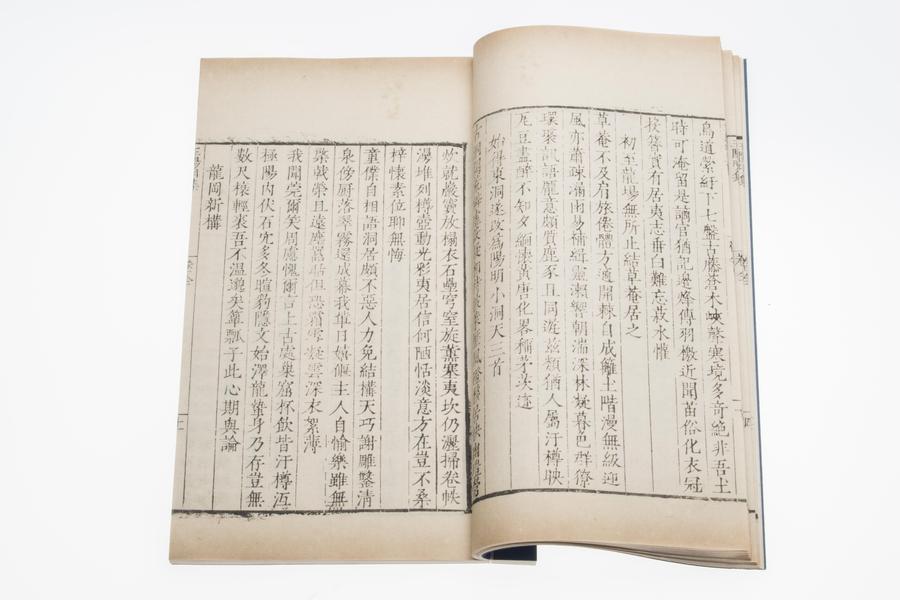 鳥道縈紆下七盤古藤蒼木峽聲寒境多奇絶非吾土
時可淹留是謫官猶記邊烽傳羽檄近聞苗俗化衣冠
投簪實有居夷志垂白難忘菽水懽
初至龍場無所止結草菴居之
草菴不及肩旅倦體方適開棘自成籬土階漫無級迎
風亦蕭疎漏雨易補緝靈瀨響朝湍深林凝暮色群獠
環聚訊語龐意頗質鹿豕且同遊茲類猶人屬汙樽映
瓦豆盡醉不知夕緬懷黃唐化畧稱茅茨迹
始得東洞遂改為陽明小洞天三首
炊就巖竇放榻衣石壘穹窒旋薰塞夷坎仍灑掃卷帙
漫堆列樽壺動光彩夷居信何陋恬淡意方在豈不桑
梓懷素位聊無悔
童僕自相語洞居頗不惡人力免結構天巧謝雕鑿清
泉傍厨落翠霧還成幕我輩日嬉偃主人自愉樂雖無
棨戟榮且遠塵囂聒但恐霜雪凝雲深衣絮薄
我聞莞爾笑周慮愧爾言上古處巢窟抔飲皆汙樽沍
極陽內伏石穴多冬暄豹隱文始澤龍蟄身乃存豈無
數尺榱輕裘吾不溫邈矣簞瓢子此心期與論
龍岡新構